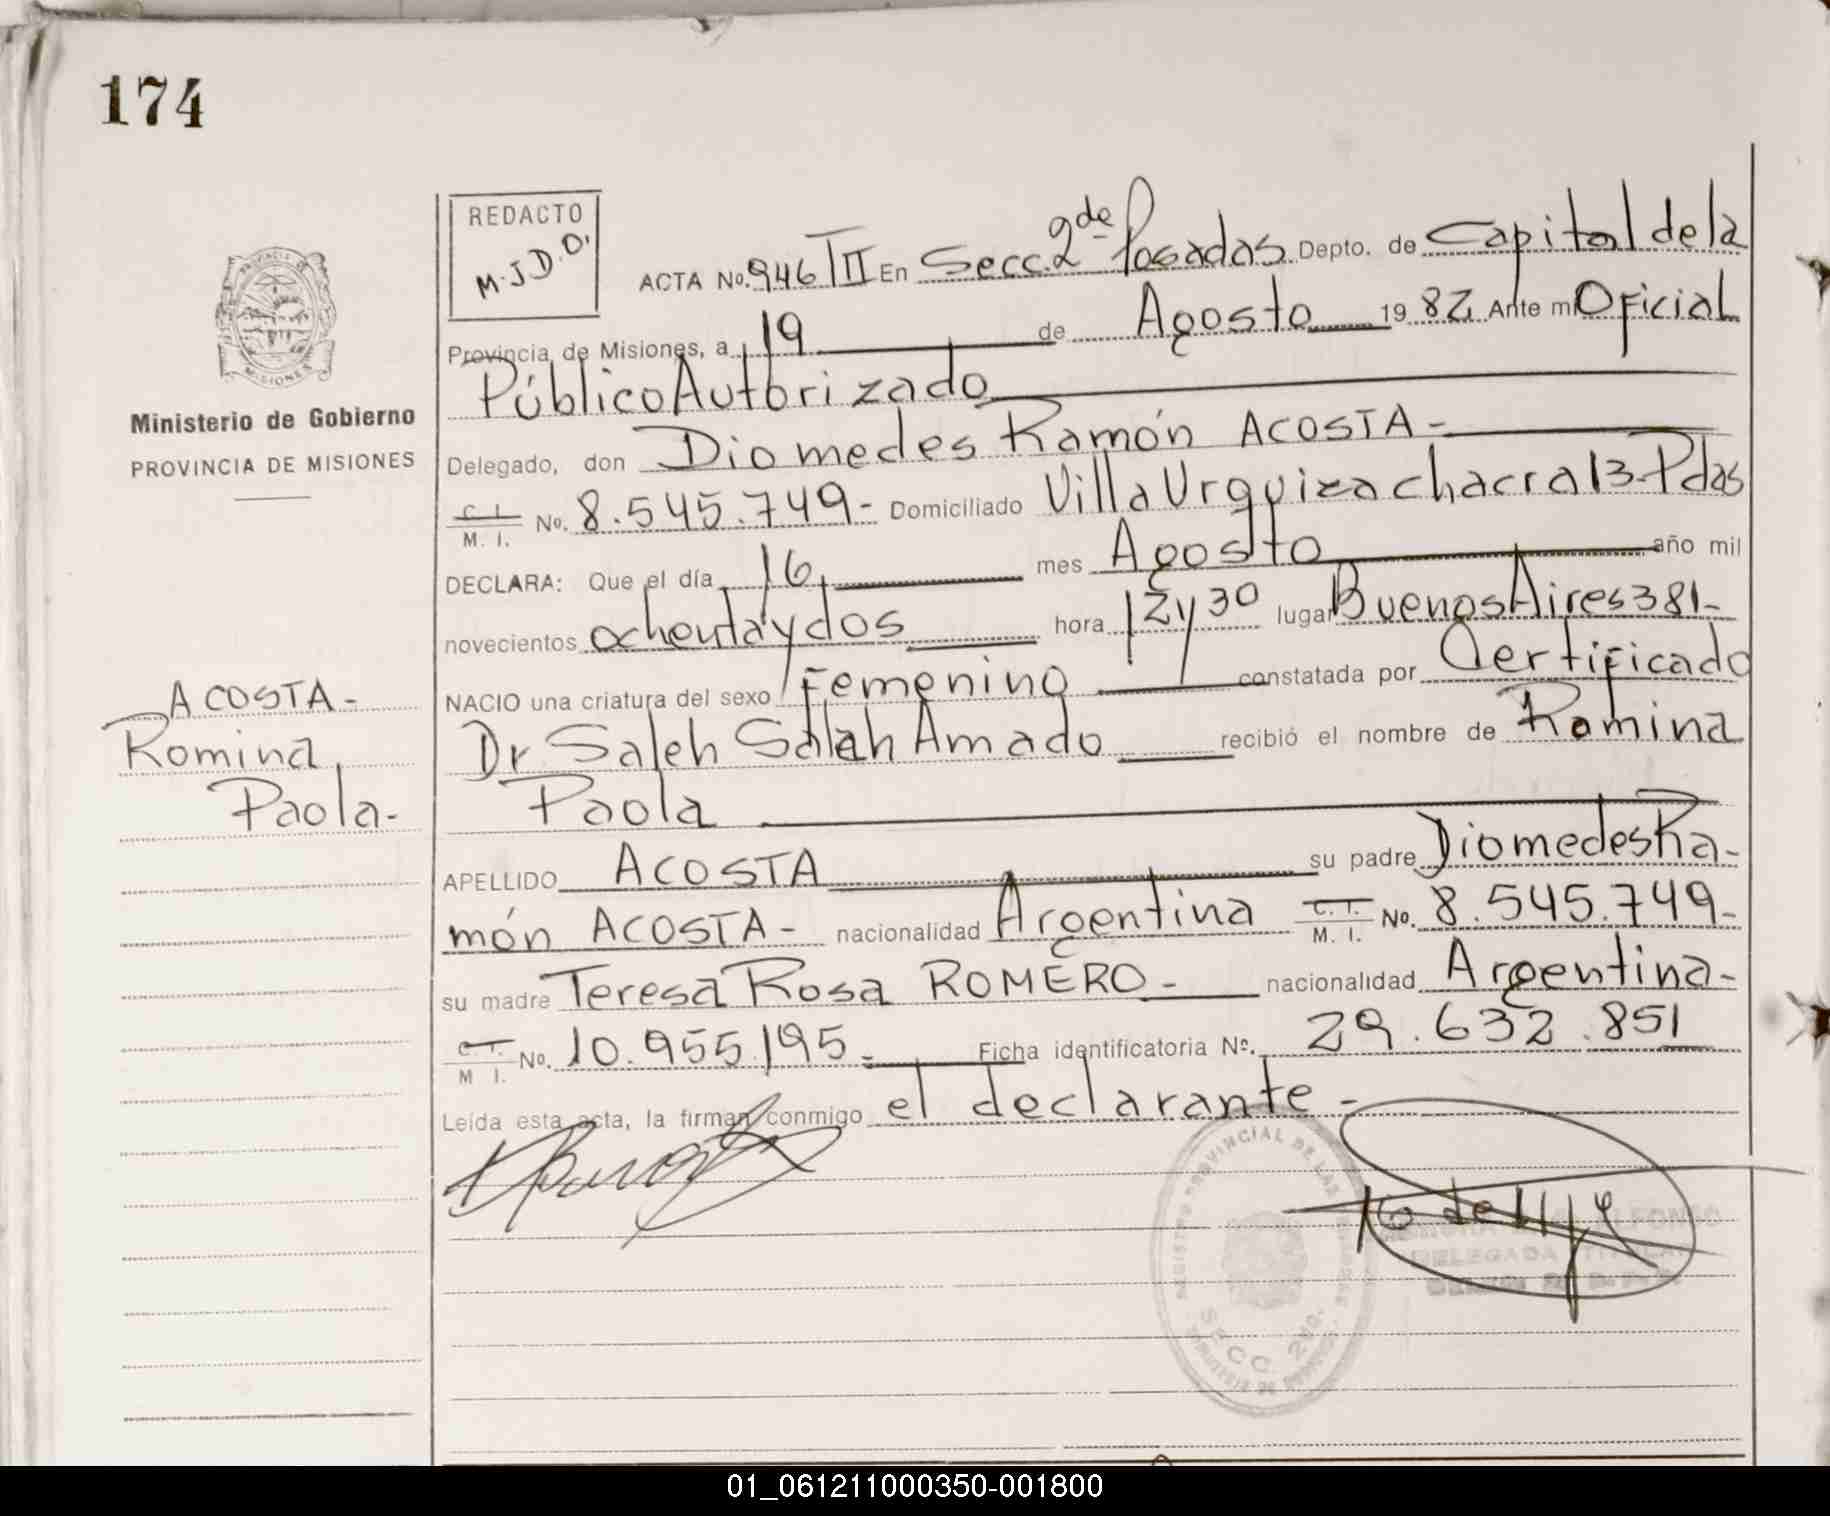 174
REDACTO
M.J.D.O.
ACTA No. 946 TII En Secc. 2da de Posadas Depto. de Capital de la
Provincia de Misiones, a 19 de Agosto 1982 Ante mi Oficial
Público Autorizado
Delegado, don Diomedes Ramón ACOSTA -
C. I. M. I. No. 8.545.749- Domiciliado Villa Urquiza chacra 13-Pdas
DECLARA: Que el día 16, mes Agosto año mil
novecientos ochenta y dos hora 12 y 30 lugar Buenos Aires 381-
NACIO una criatura del sexo Femenino constatada por Certificado
Dr Saleh Salah Amado recibió el nombre de Romina
Paola
APELLIDO ACOSTA su padre Diomedes Ra-
món ACOSTA - nacionalidad Argentina C. I. M. I. No. 8.545.749-
su madre Teresa Rosa ROMERO - nacionalidad Argentina-
C. I. M. I. No. 10.955.195- Ficha identificatoria No. 29.632.851
Leída esta acta, la firman conmigo el declarante -
PROVINCIA DE MISIONES
Ministerio de Gobierno
PROVINCIA DE MISIONES
ACOSTA-
Romina
Paola-
REGISTRO PROVINCIAL DE LAS
SECC. 2DA.
ALFONSO
DELEGADA TITULAR
01_061211000350-001800